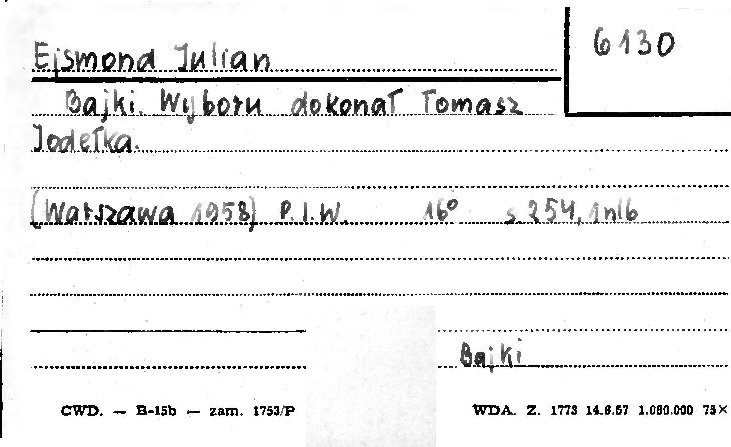 6130
Ejsmond Julian
Bajki. Wyboru dokonał Tomasz
Jodełka.
[Warszawa 1958] P.I.W. 16° s. 254, 1nlb
Bajki
CWD. — B-15b — zam. 1753/P
WDA. Z. 1773 14.6.57 1.080.000 75×